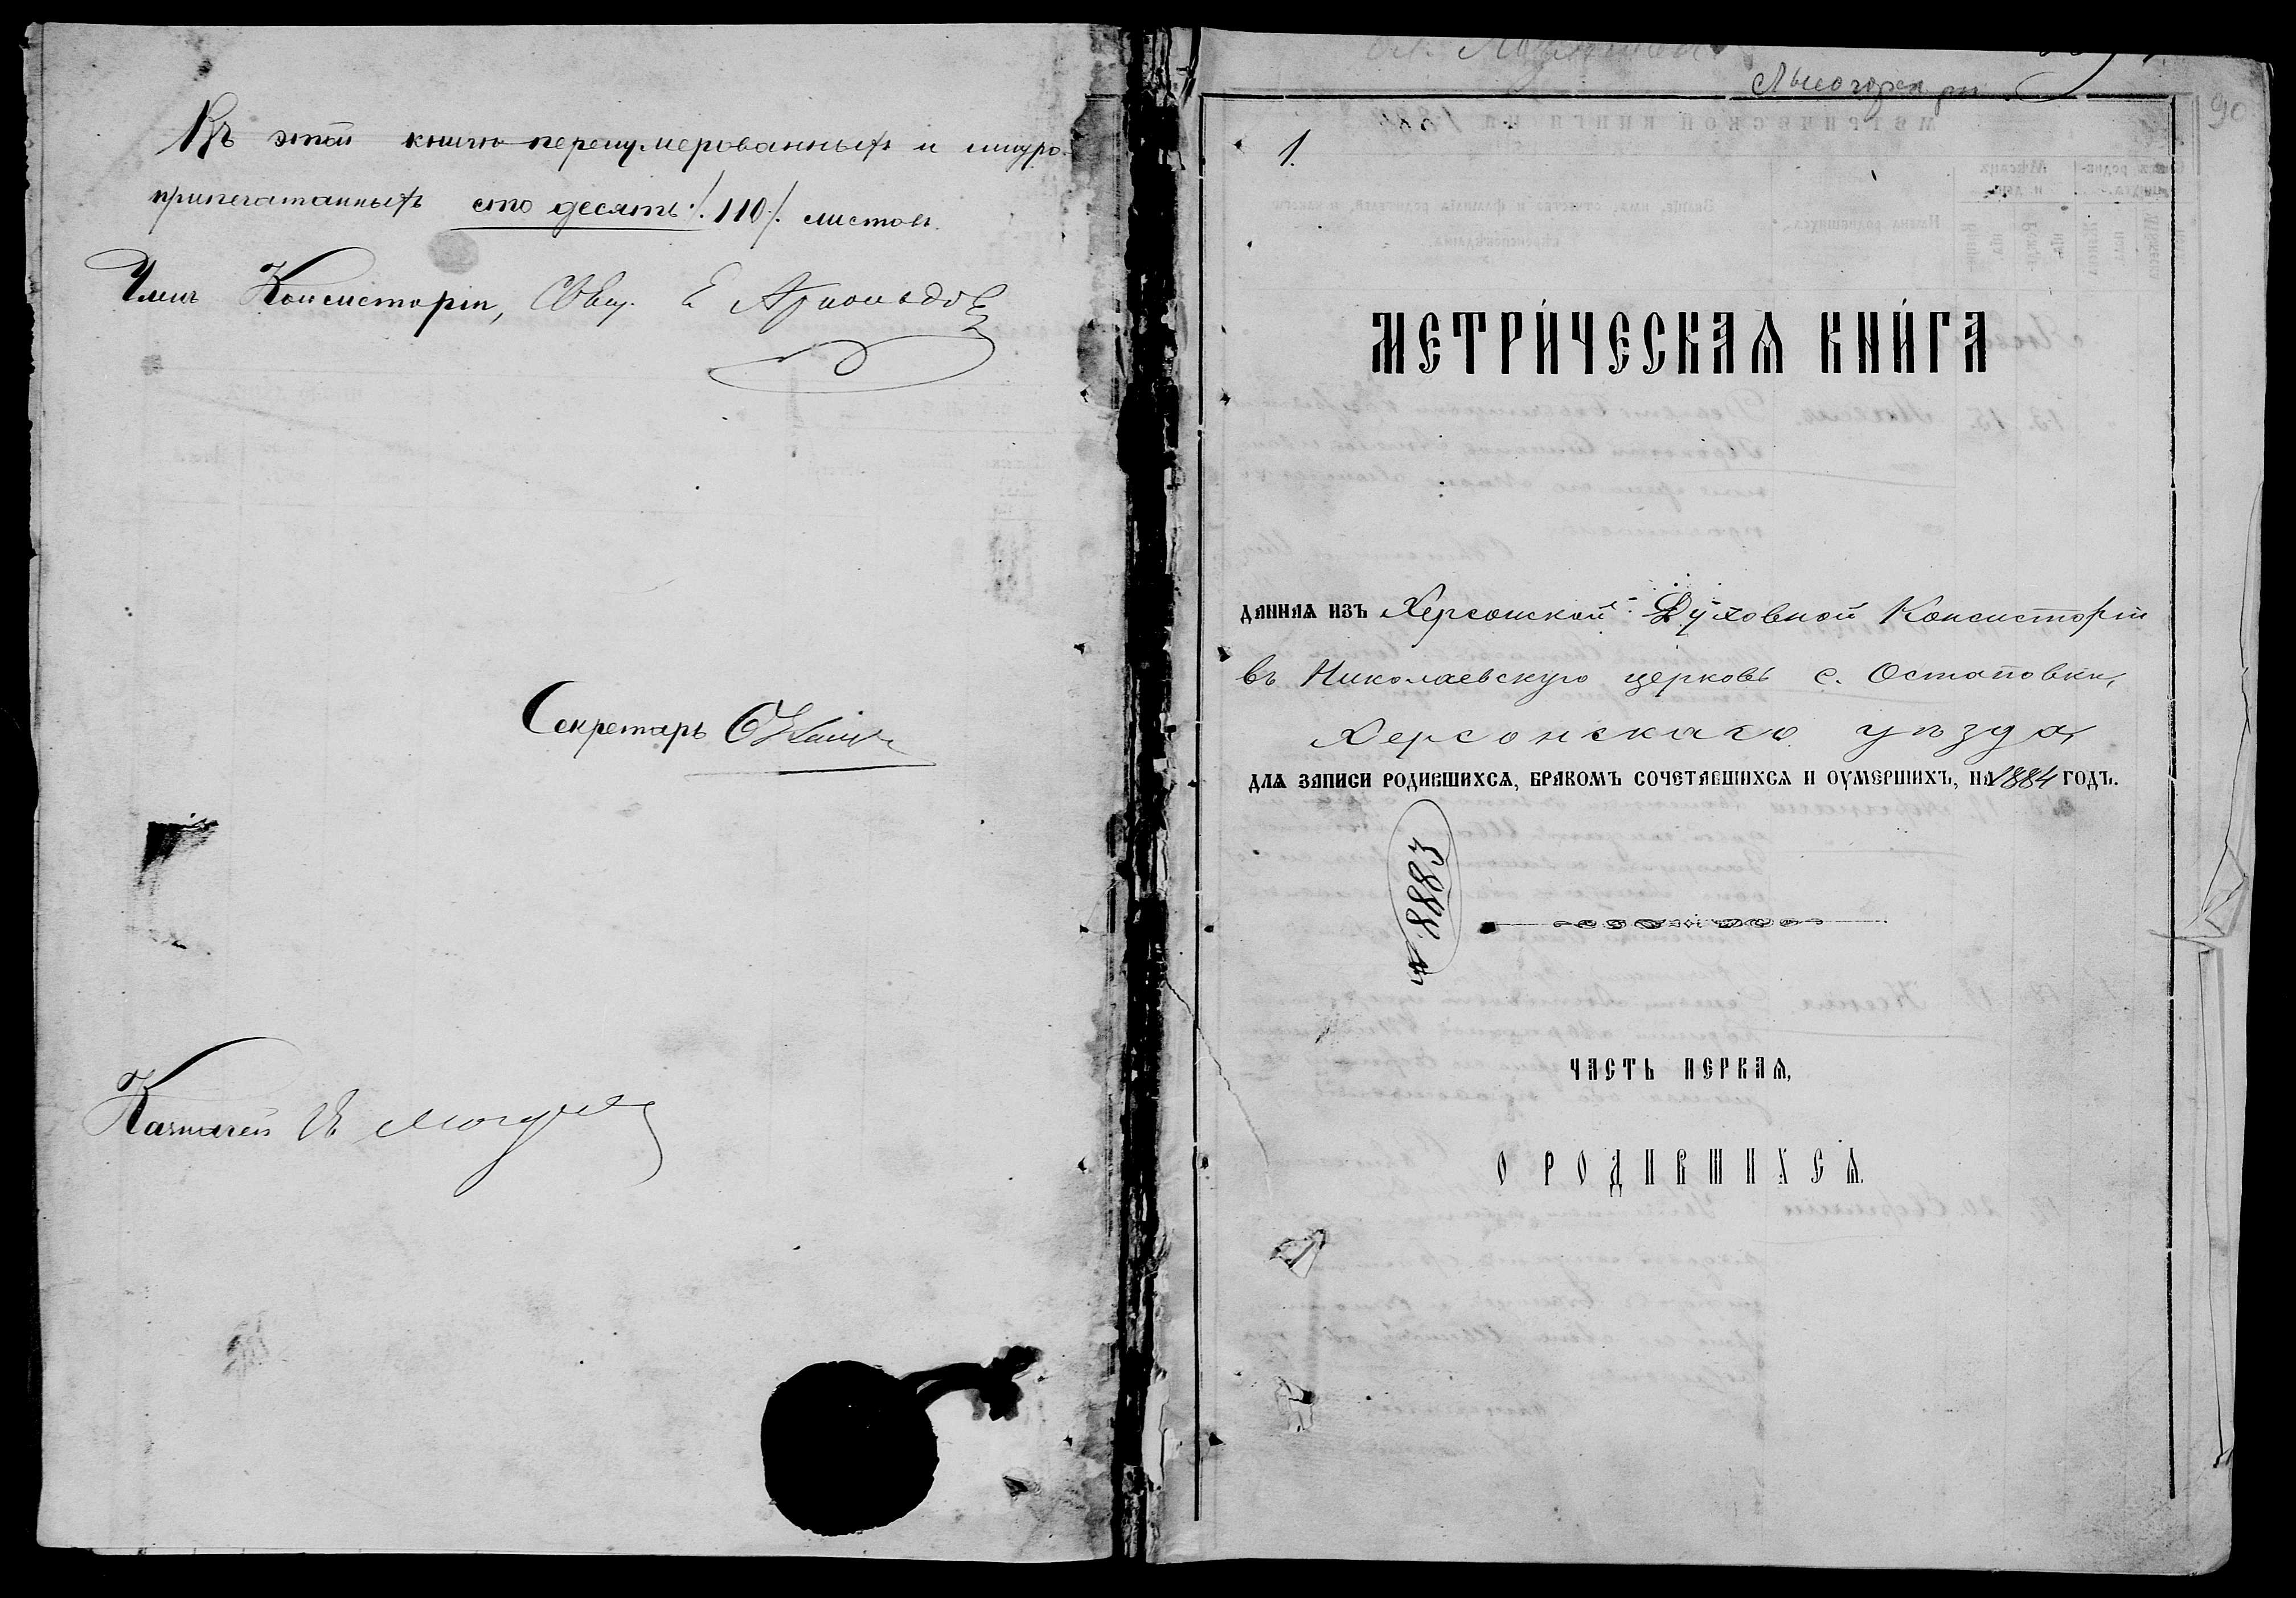 Въ этой книгѣ перенумерованныхъ и шнуро-
припечатанныхъ сто десять /.110/. листовъ.
Членъ Консисторіи, Свящ. Е Арнольдов
Секретарь
Казначей
Лысогорка
90
1.
МЕТРИ́ЧЕСКАѦ КНИ́ГА
ДАННАѦ ИЗЪ Херсонской Духовной Консисторіи
въ Николаевскую церковь с. Остаповки,
Херсонскаго уѣзда,
ДЛѦ ЗАПИСИ РОДИВШИХСѦ, БРАКОМЪ СОЧЕТАВШИХСѦ И ОУМЕРШИХЪ, НА 1884 ГОДЪ.
ЧАСТЬ ПЕРВАѦ,
О РОДИВШИХСѦ.